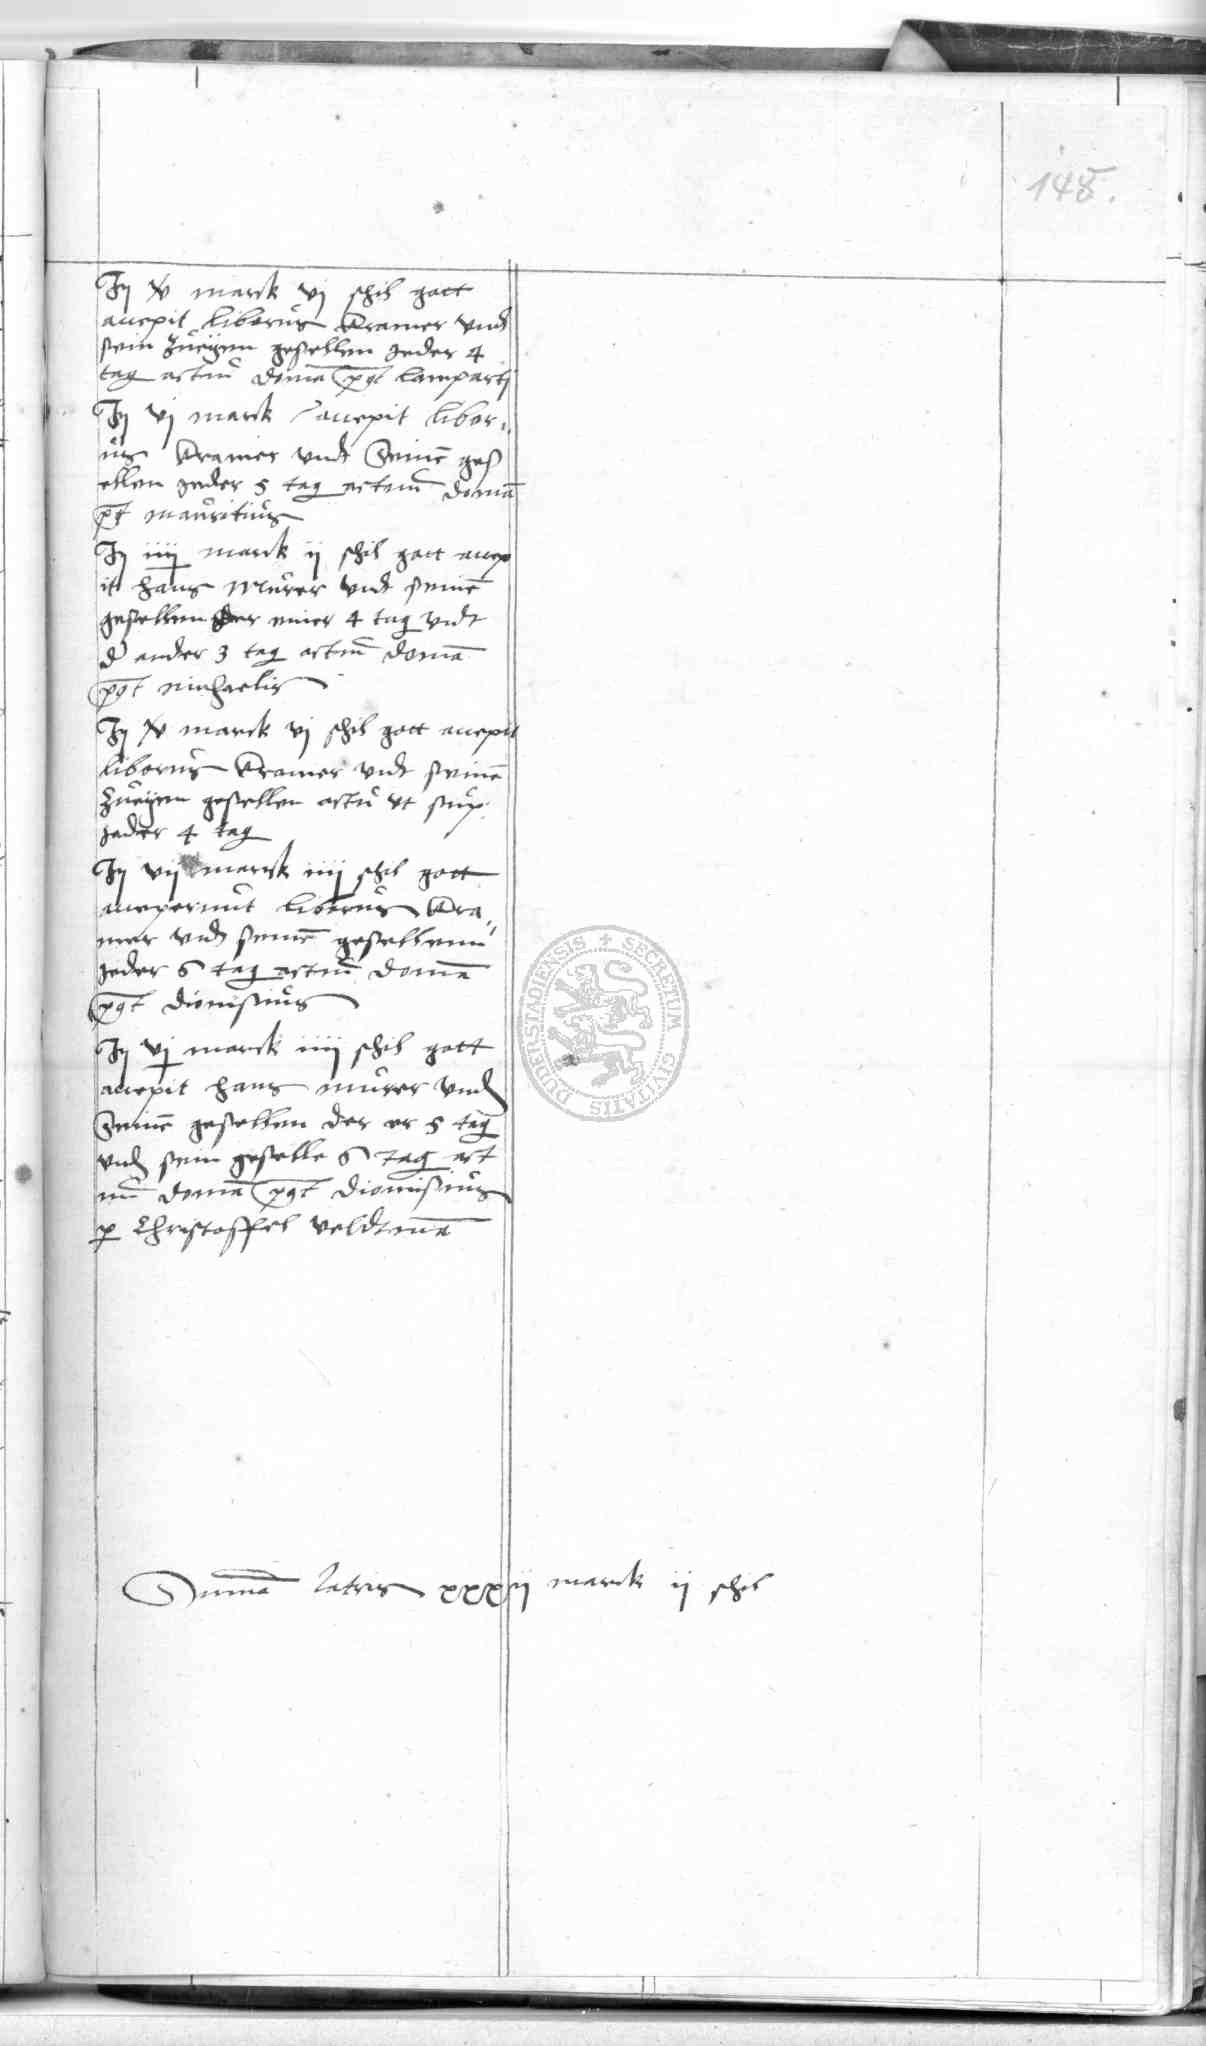 148.
Jtm iv marck vj schil gott
accepit liborius Kramer vnd
sein zweyen gesellen jeder 4
tag actum domca post lamparti
Jtm vj marck accepit libor-
ius Kramer vndt seinē ges
ellen jeder 5 tag actum domca
post mauritius
Jtm iiij marck ij schil gott accep
it hans Murer vndt seinē
gesellen der einer 4 tag vndt
d ander 3 tag actum domca
post michaelis
Jtm iv marck vj schil gott accepit
liborius Kramer vndt seinē
zweyen gesellen actū vt sup.
jeder 4 tag
Jtm vij marck iiij schil gott
acceperunt liborius Kra-
mer vnd seinē gesellenn
jeder 6 tag actum domca
post dionisius
Jtm vj marck iiij schil gott
accepit hans murer vnd
seinē gesellen der er 5 tag
vnd sein geselle 6 tag act
um domca post dionisius
p Christoffel veldtmā
Summa latris xxxij marck ij schil
DUDERSTADIENSIS + SECRETUM CIVITATIS